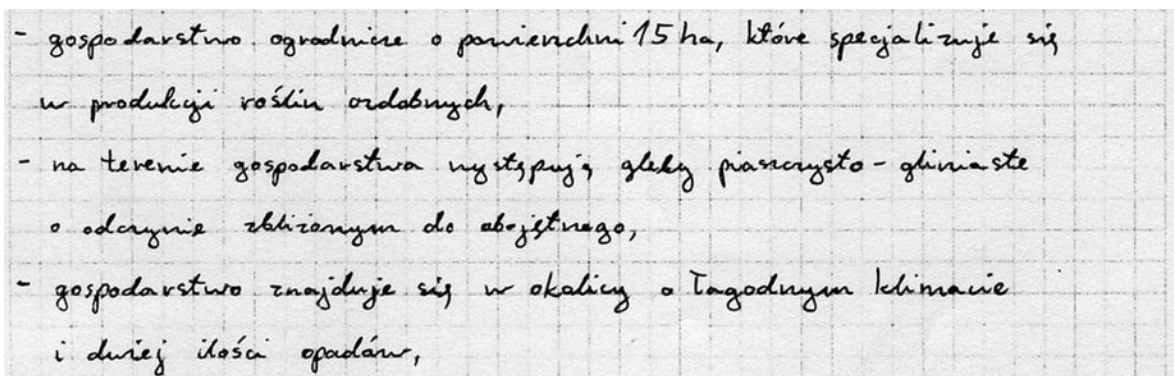 - gospodarstwo ogrodnicze o powierzchni 15 ha, które specjalizuje się
w produkcji roślin ozdobnych,
- na terenie gospodarstwa występują gleby piaszczysto - gliniaste
o odczynie zbliżonym do obojętnego,
- gospodarstwo znajduje się w okolicy o łagodnym klimacie
i dużej ilości opadów,